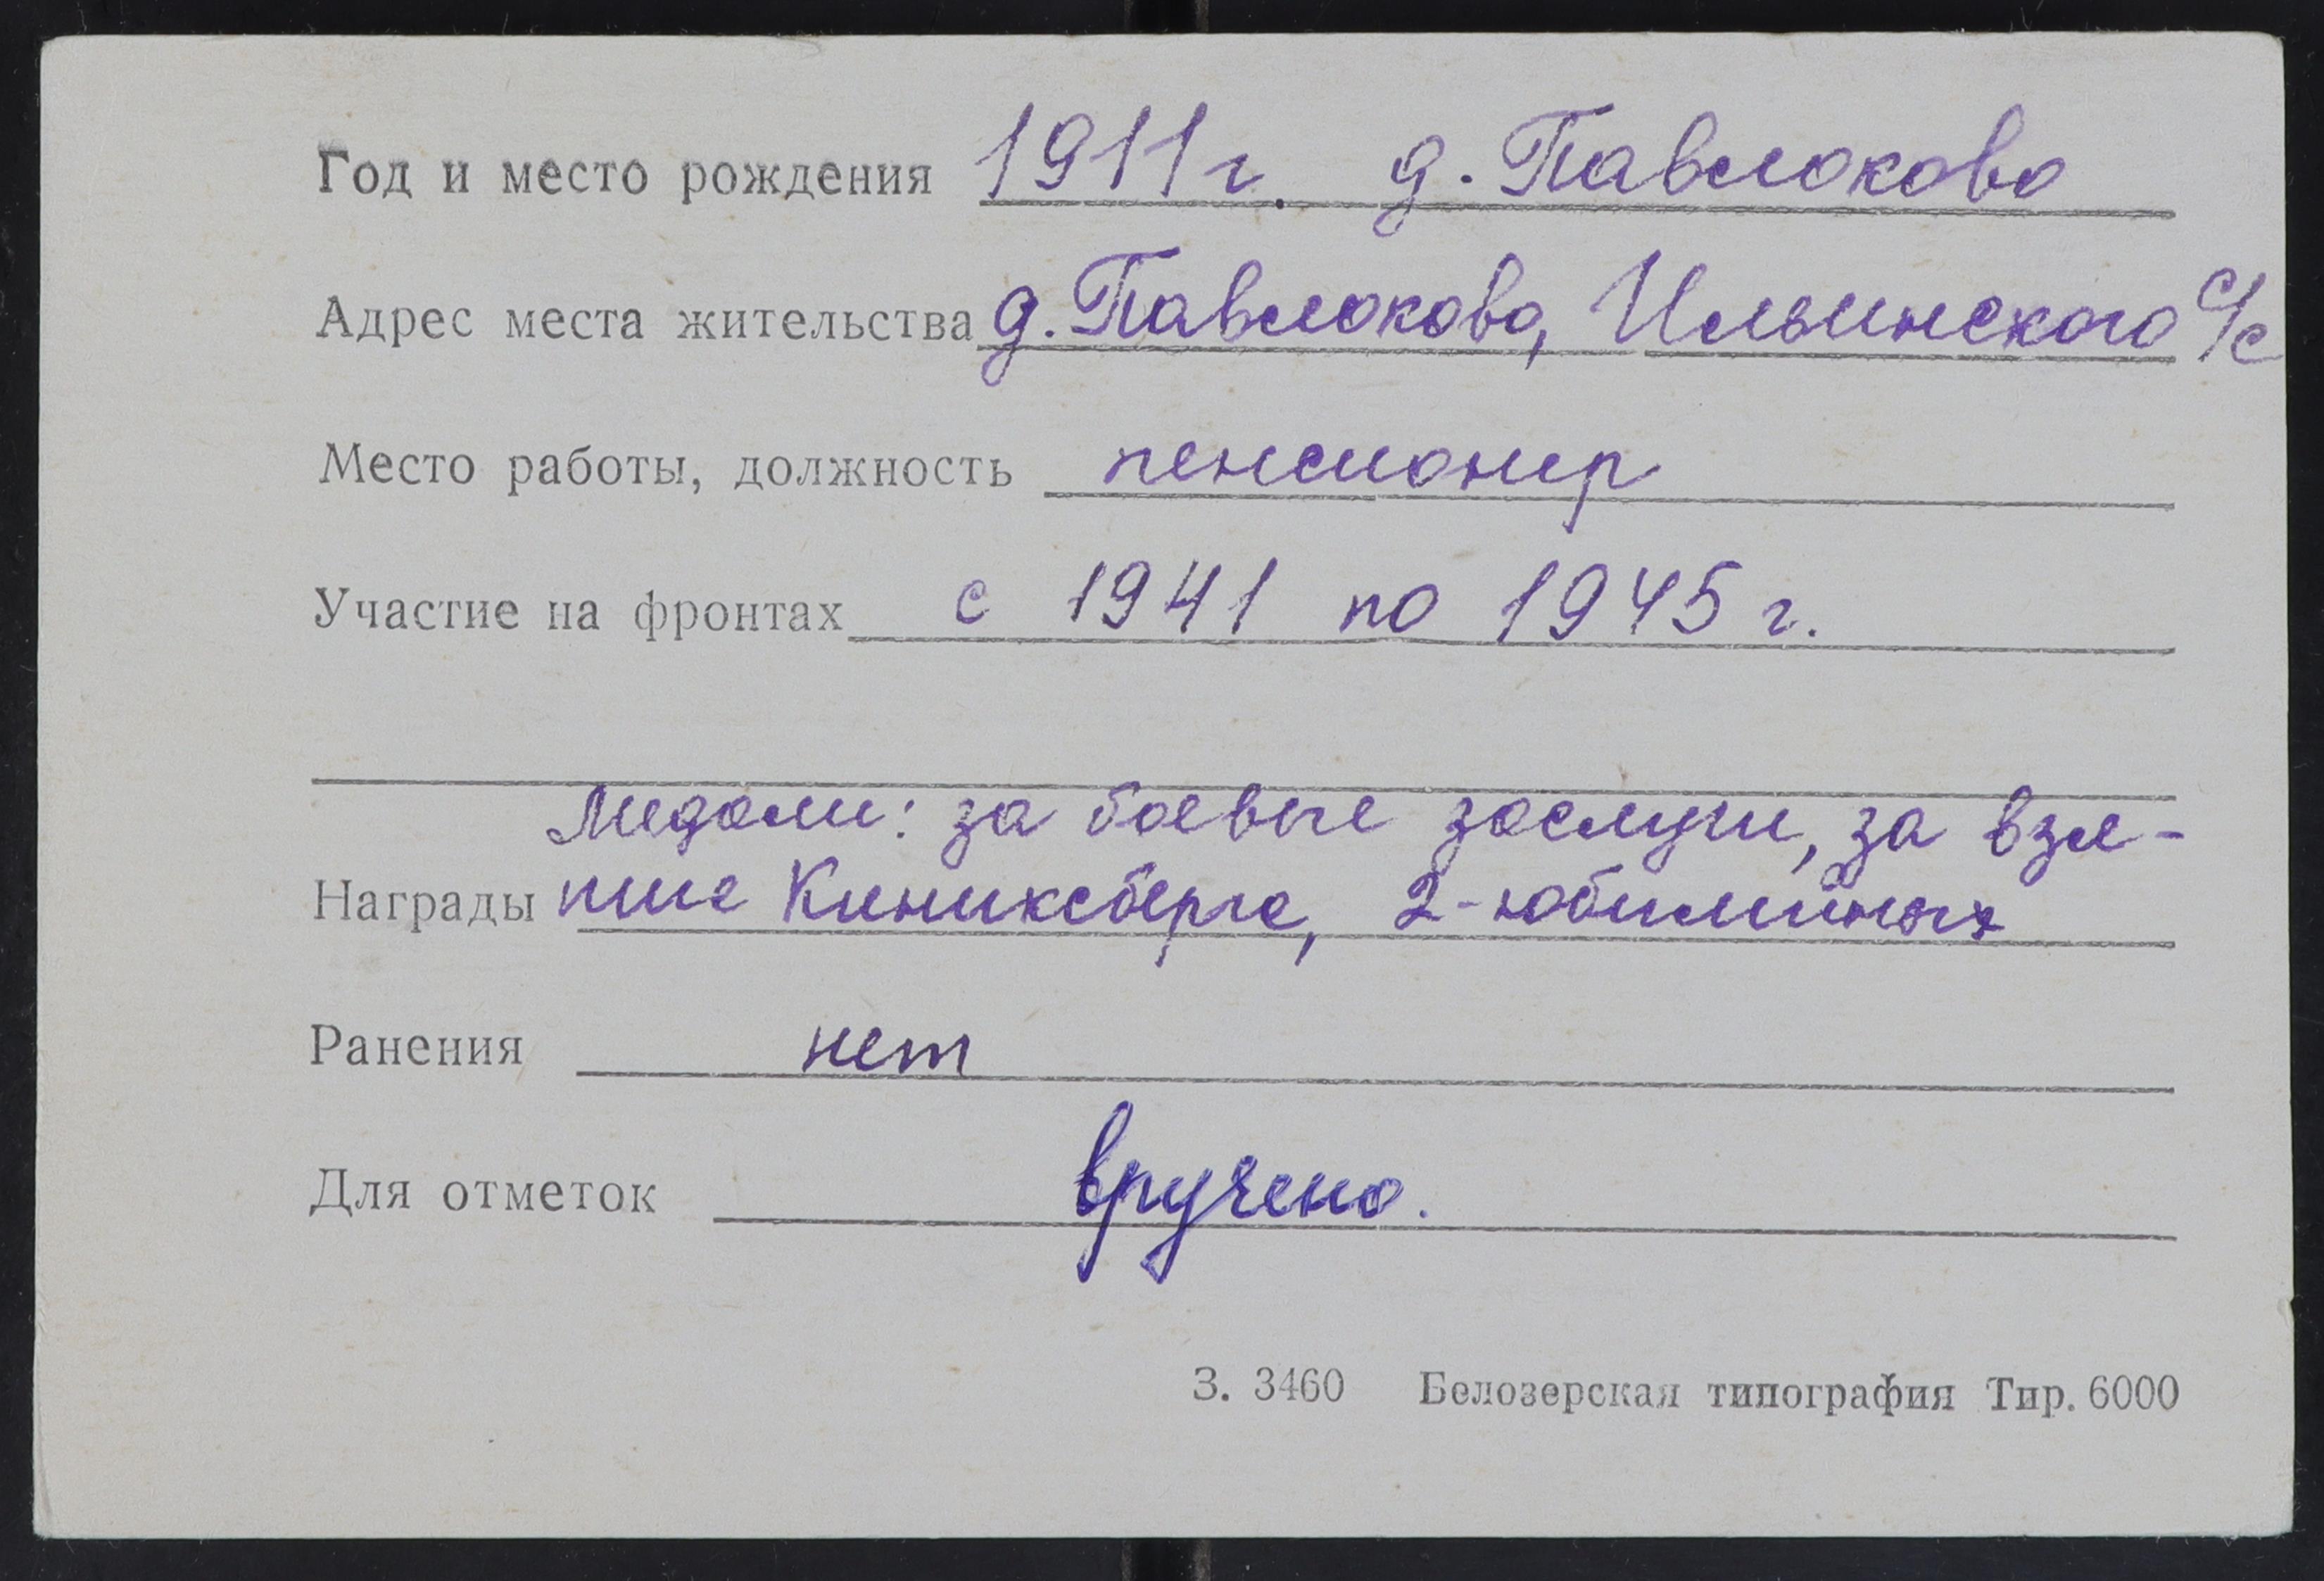 Год и место рождения 1911 г. д. Павлоково
Адрес места жительства д. Павлоково, Ильинского с/с
Место работы, должность пенсионер
Участие на фронтах с 1941 по 1945 г.
Медали: за боевые заслуги, за взя-
Награды тие Кениксберга, 2-юбилейных
Ранения нет
Для отметок вручено.
З. 3460 Белозерская типография Тир. 6000